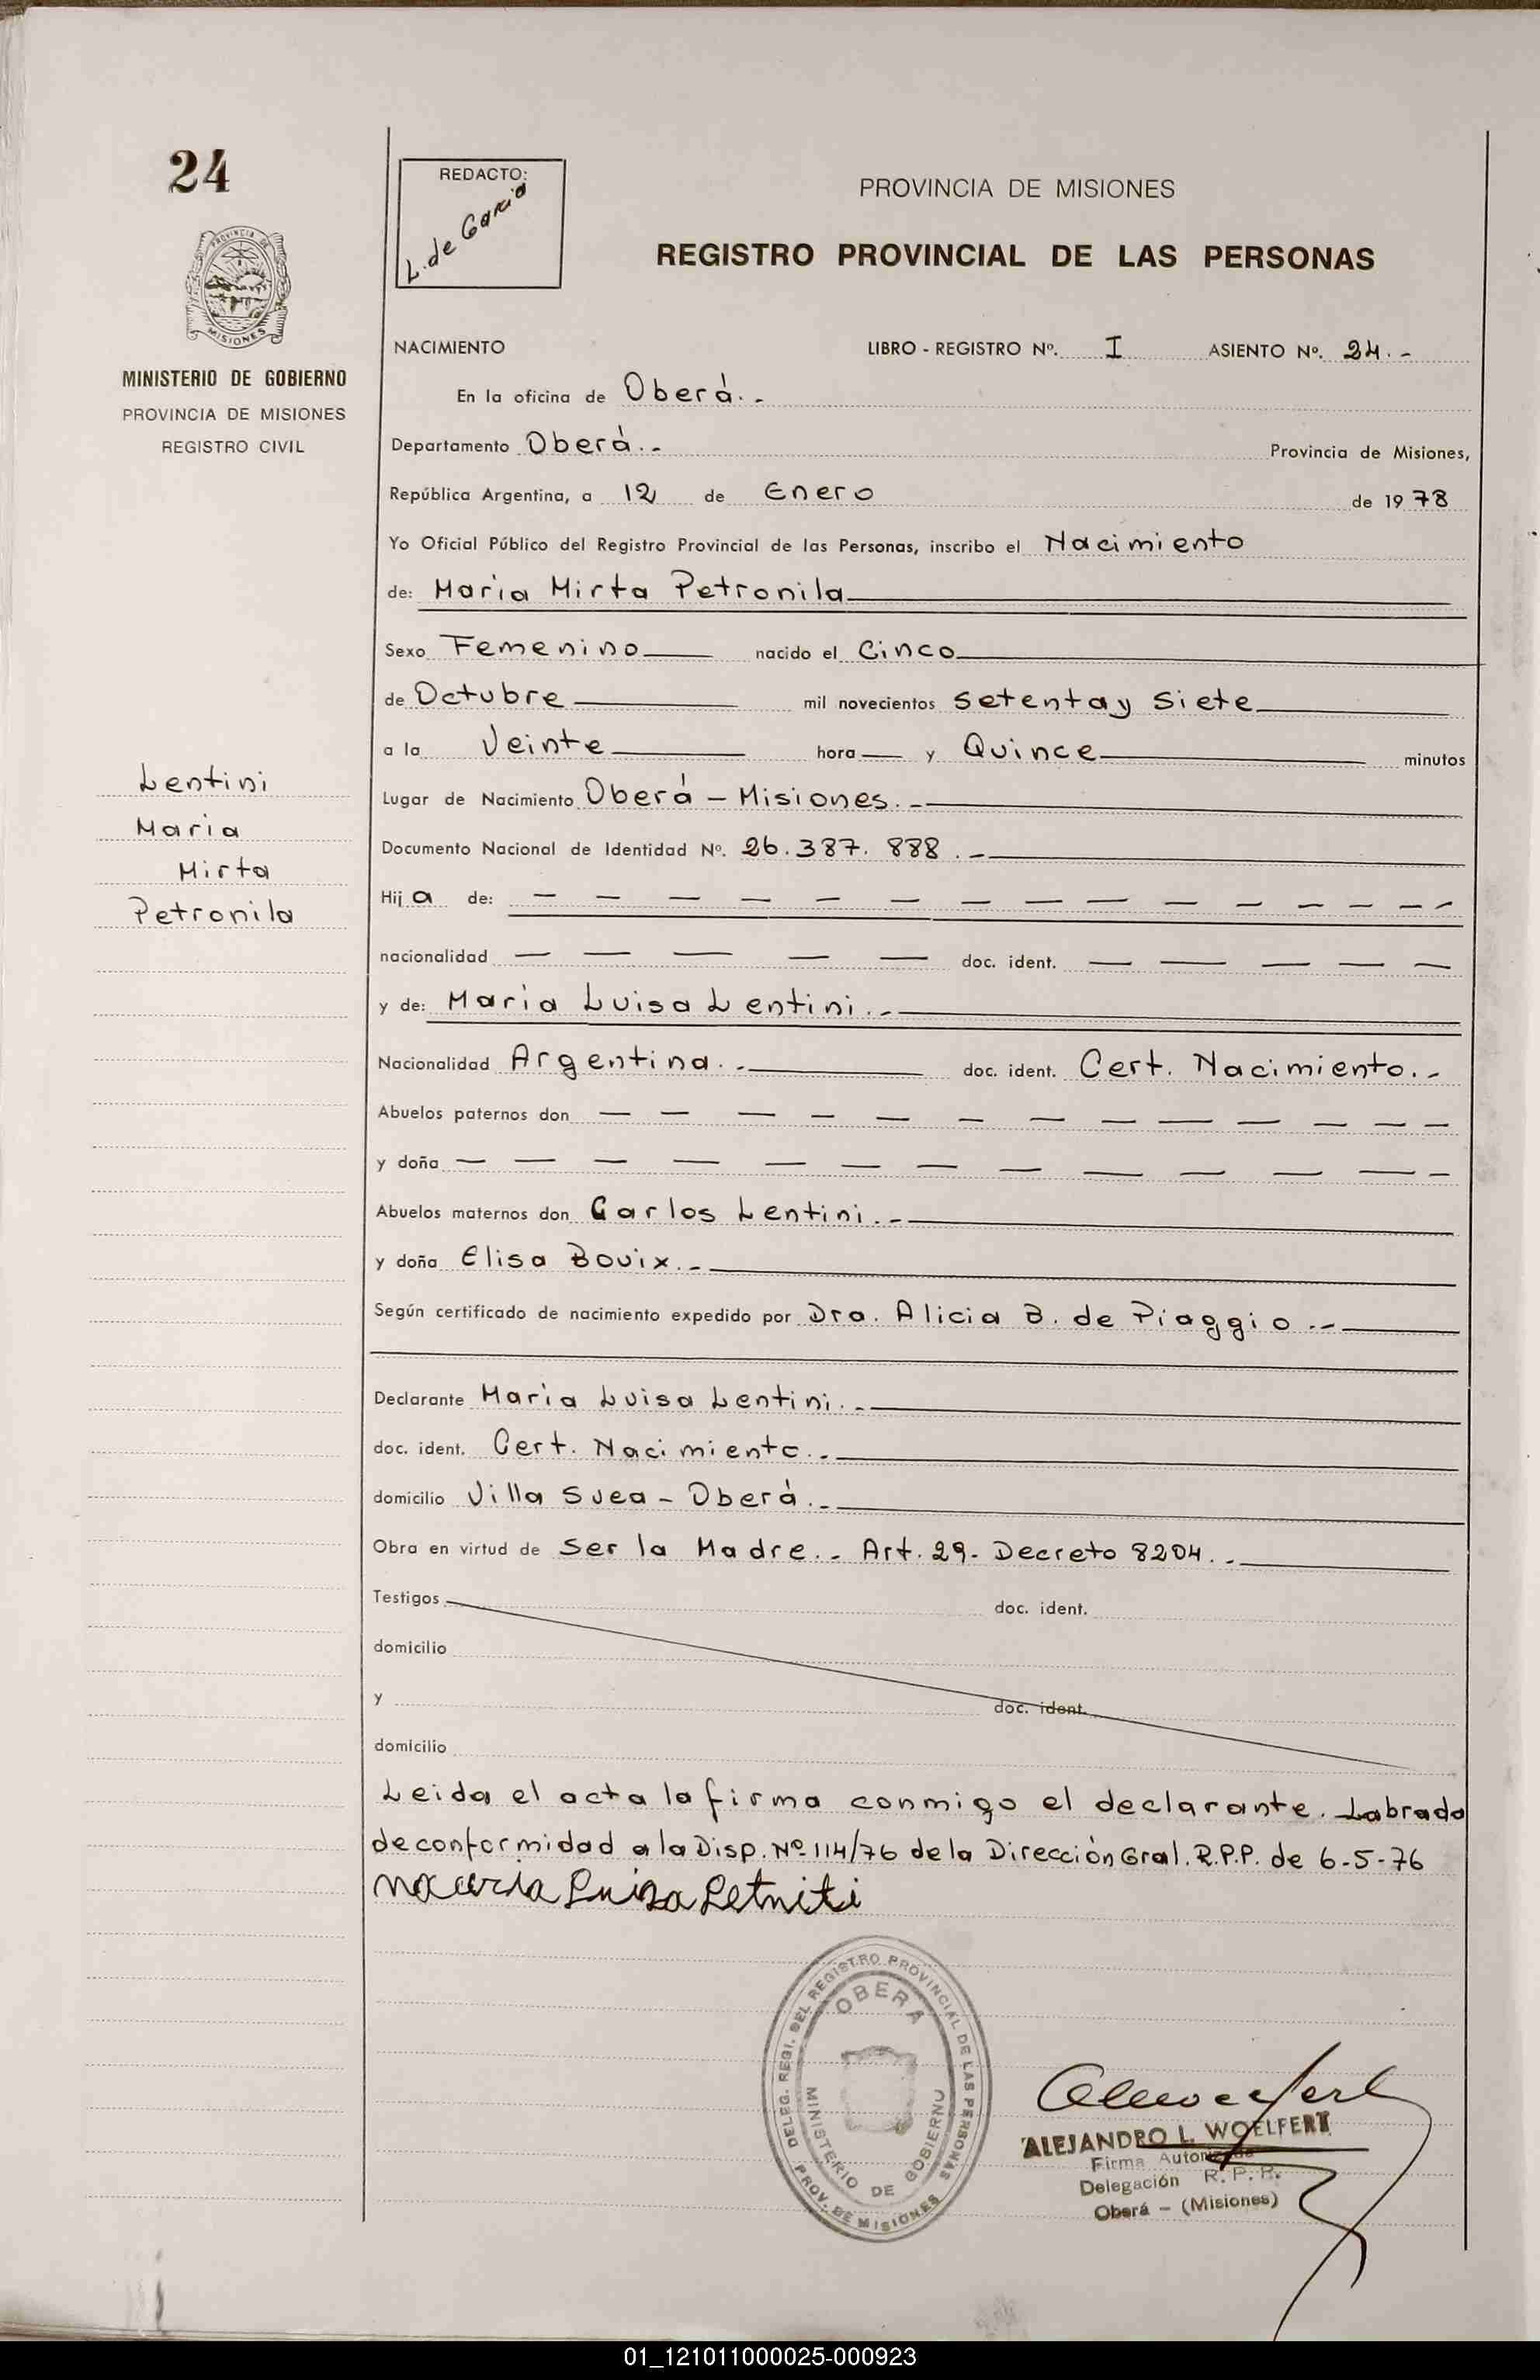 24
REDACTO:
L. de Garcia
PROVINCIA DE MISIONES
REGISTRO PROVINCIAL DE LAS PERSONAS
PROVINCIA DE
MISIONES
MINISTERIO DE GOBIERNO
PROVINCIA DE MISIONES
REGISTRO CIVIL
NACIMIENTO LIBRO - REGISTRO Nº. I ASIENTO Nº. 24.-
En la oficina de Oberá.-
Departamento Oberá.- Provincia de Misiones,
República Argentina, a 12 de Enero de 1978
Yo Oficial Público del Registro Provincial de las Personas, inscribo el Nacimiento
de: Maria Mirta Petronila
Sexo Femenino nacido el Cinco
de Octubre mil novecientos setenta y siete
a la Veinte hora — y Quince minutos
Lugar de Nacimiento Oberá - Misiones.-
Documento Nacional de Identidad Nº. 26.387.888.-
Hija de: — — — — — — — — — — — — — —
nacionalidad — — — — — doc. ident. — — — — —
y de: Maria Luisa Lentini.-
Nacionalidad Argentina.- doc. ident. Cert. Nacimiento.-
Abuelos paternos don — — — — — — — — — — — —
y doña — — — — — — — — — — — — —
Abuelos maternos don Carlos Lentini.-
y doña Elisa Bouix.-
Según certificado de nacimiento expedido por Dra. Alicia B. de Piaggio.--
Declarante Maria Luisa Lentini.-
doc. ident. Cert. Nacimiento.-
domicilio Villa Svea - Oberá.-
Obra en virtud de Ser la Madre.- Art. 29- Decreto 8204.-
Testigos doc. ident.
domicilio
y doc. ident.
domicilio
Leida el acta la firma conmigo el declarante. Labrado
de conformidad a la Disp. Nº 114/76 de la Dirección Gral. R.P.P. de 6-5-76
Lentini
Maria
Mirta
Petronila
Luisa Letniti
DELEG. REGI. DEL REGISTRO PROVINCIAL DE LAS PERSONAS
OBERA
MINISTERIO DE GOBIERNO
PROV. DE MISIONES
ALEJANDRO L. WOELFERT
Firma Autorizada
Delegación R.P.P.
Oberá - (Misiones)
01_121011000025-000923